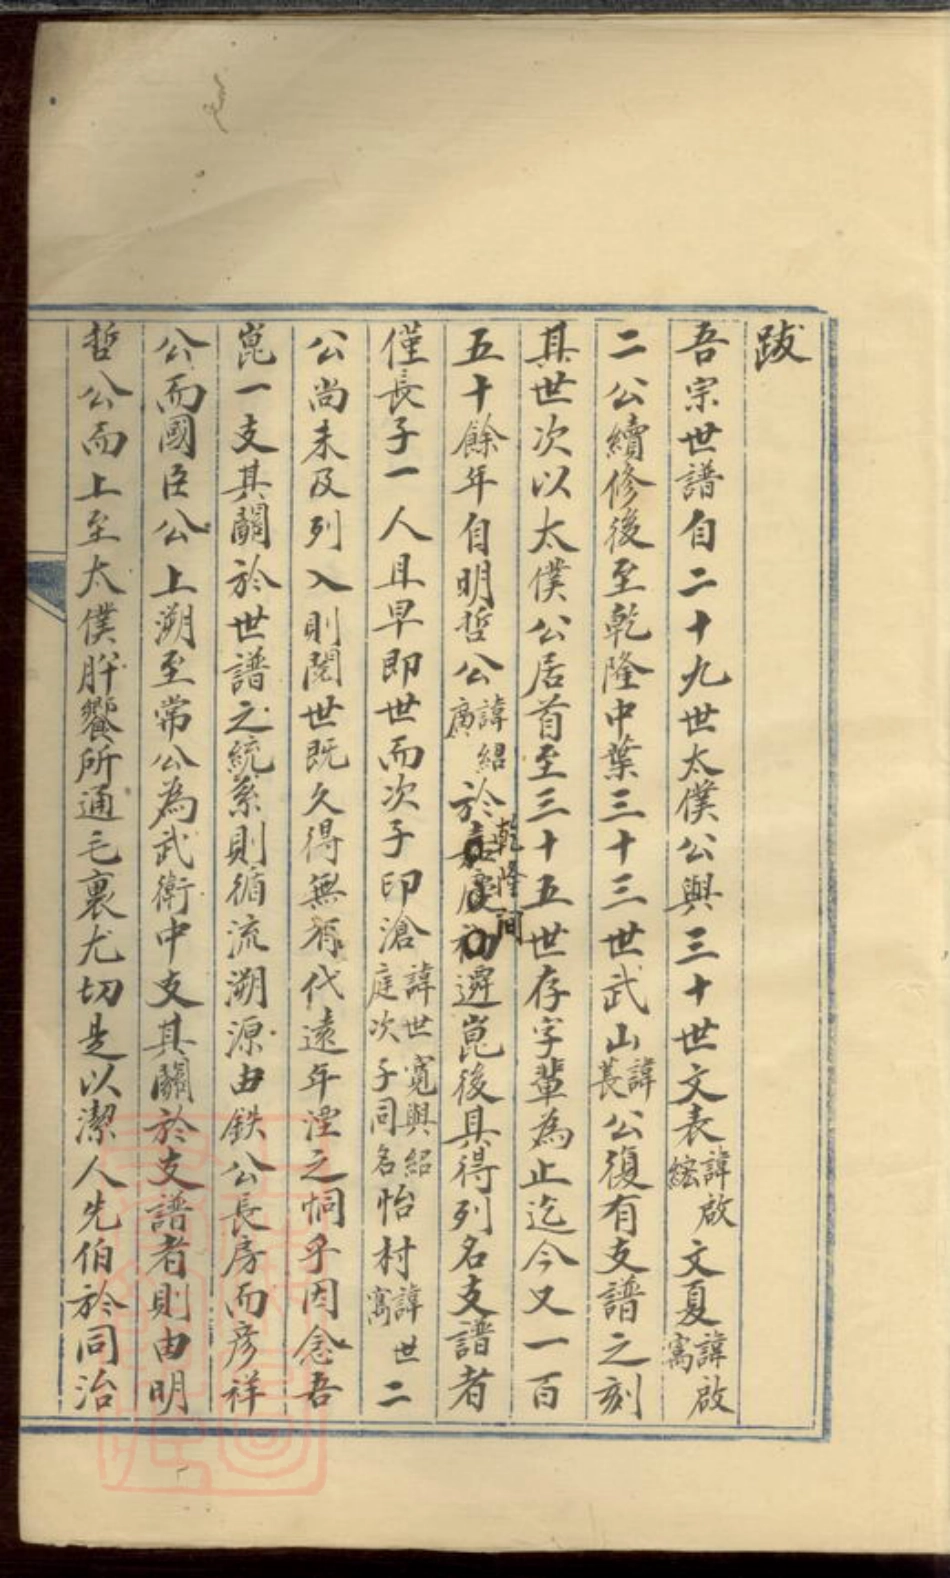 跋
吾宗世譜自二十九世太僕公與三十世文表諱啟綋文夏諱啟寯
二公續修後至乾隆中葉三十三世武山諱萇公復有支譜之刻
其世次以太僕公居首至三十五世存字輩為止迄今又一百
五十餘年自明哲公諱紹廣於乾隆间遷崑後具得列名支譜者
僅長子一人且早即世而次子印滄諱世寬與紹庭次子同名怡村諱世寯二
公尚未及列入則閱世既久得無有代遠年湮之恫乎因念吾
崑一支其關於世譜之統系則循流溯源由鉄公長房而彥祥
公而國臣公上溯至常公為武衛中支其關於支譜者則由明
哲公而上至太僕肸蠁所通毛裏尤切是以潔人先伯於同治